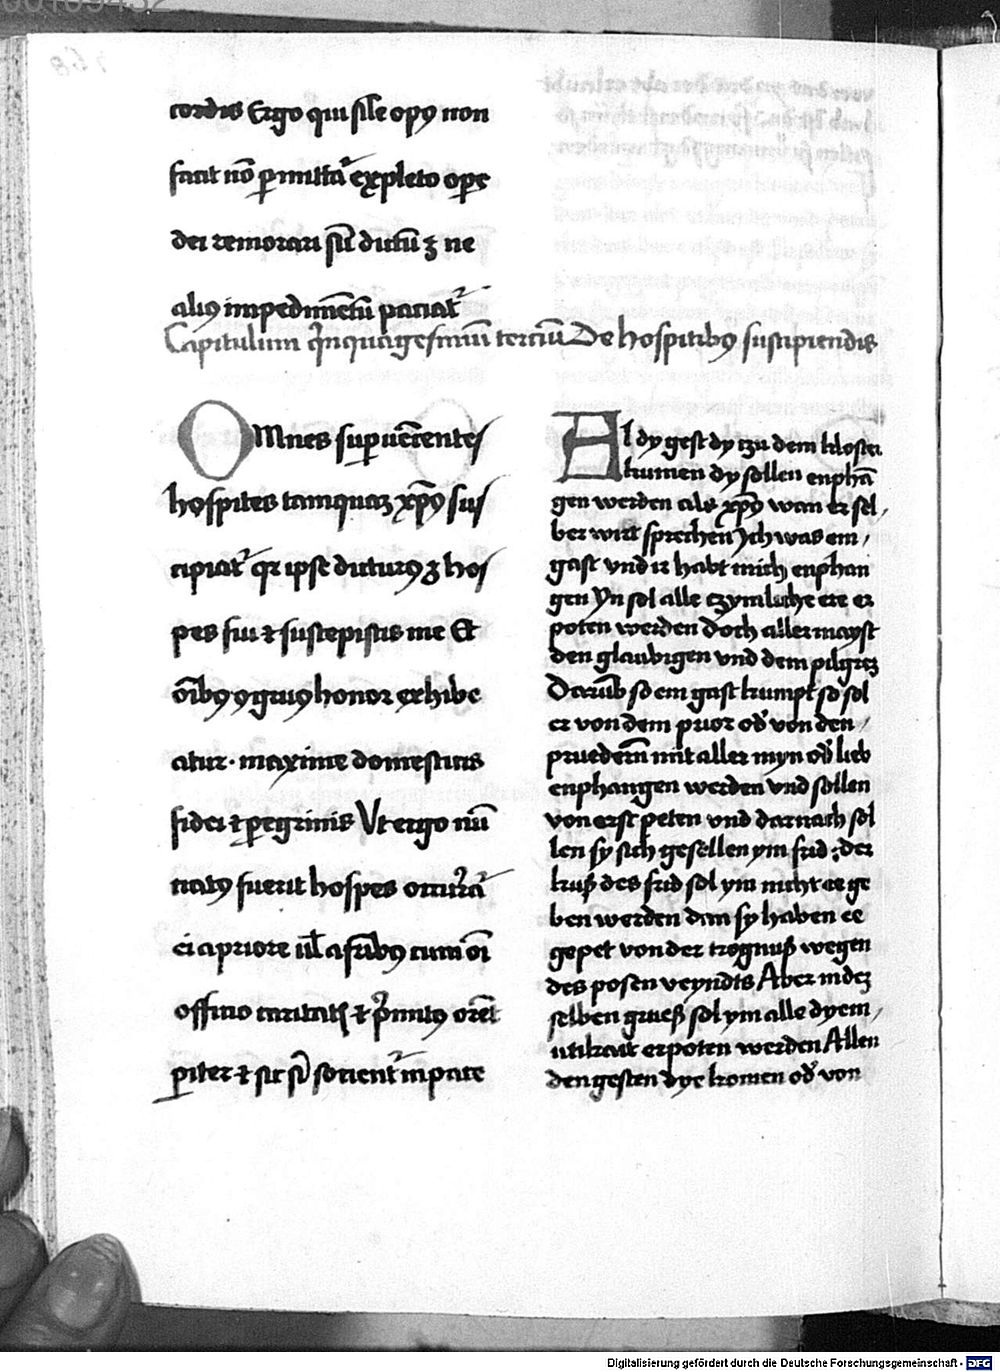 cordis Ergo qui sil̄e opꝰ non
facit nō ꝑmittat᷑ expleto oꝑe
dei remorari sic̄ dictū ꝫ ne
aliꝰ impedimētū paciat᷑
Capitulum qͥnquagesimū terciū De hospitibꝰ suscipiendis
OMnes suꝑueēntes
hospites tamquaꝫ xp̄ꝰ sus
cipiat᷑ qꝛ ipse dicturꝰ ꝫ hos
pes fui ⁊ suscepistis me Et
oībꝰ ꝯgruꝰ honor exhibe
atur · maxime domesticis
fidei ⁊ ꝑegrinis Vt ergo nū
ciatꝰ fuerit hospes occurͣt᷑
ei a priore ul̄ a fr̄ibꝰ cum oī
officio caritatꝭ ⁊ pͥmitꝰ orēt
ꝑiter ⁊ sic sͥ socient᷑ in pace
Al dy gest dy tzu dem kloster
kumen dy sollen enphā
gen werden als xp̄ꝰ wan er sel
ber wirt sprechen Jch was em
gast vnd ir habt mich enphan
gen Yn sol alle czymliche ere er
poten werden Doch allermayst
den glaubigen vnd dem pilgreꝫ
Darūb so em gast kumpt so sol
er von dem prior od̓ von den
pruedern̄ mit aller myn od̓ lieb
enphangen werden vnd sollen
von erst peten vnd darnach sol
len sy sich gesellen ym frid : der
kuß des frid sol ym nicht ee ge
ben werden dan sy haben ee
gepet von der trognuß wegen
des posen veyndts Aber in deꝫ
selben grueß sol ym alle dyem
utikait erpoten werden Allen
den gesten dye komen od̓ von
Digitalisierung gefördert durch die Deutsche Forschungsgemeinschaft - DFG